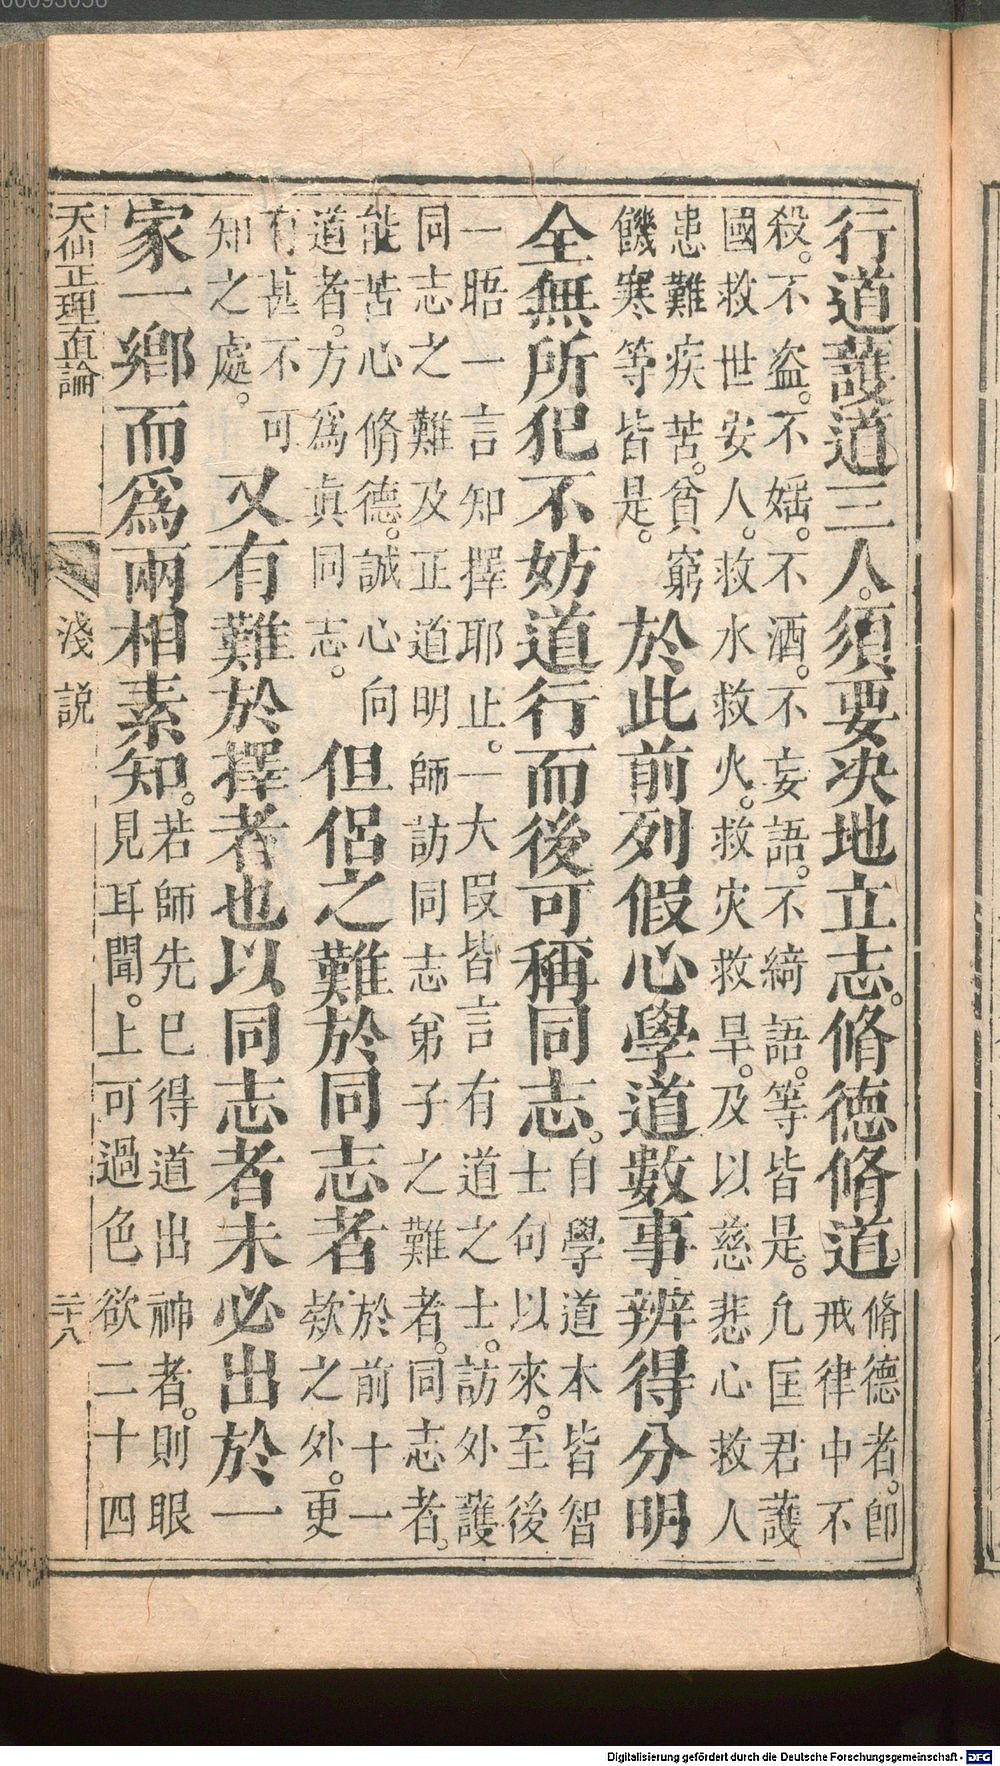 行道護道三人。須要决地立志。脩德脩道。
脩德者。卽
戒律中不
殺。不盗。不婬。不酒。不妄語。不綺語。等皆是。凢匡君護
國救世安人。救水救火。救灾救旱。及以慈悲心救人
患難疾苦。貧窮
饑寒等皆是。
於此前列假心學道數事辨得分明
全無所犯不妨道行而後可稱同志。
自學道本皆智
士句以來。至後
一晤一言知擇耶止。一大叚皆言有道之士。訪外護
同志之難及正道明師訪同志弟子之難者。同志者。
能苦心脩德。誠心向
道者。方爲眞同志。
但侶之難於同志者
於前十一
欵之外。更
有甚不可
知之處。
又有難於擇者也以同志者未必出於一
家一鄉而爲兩相素知。
若師先巳得道出神者。則眼
見耳聞。上可過色欲二十四
天仙正理直論
淺説
二十八
00093056
Digitalisierung gefördert durch die Deutsche Forschungsgemeinschaft - DFG